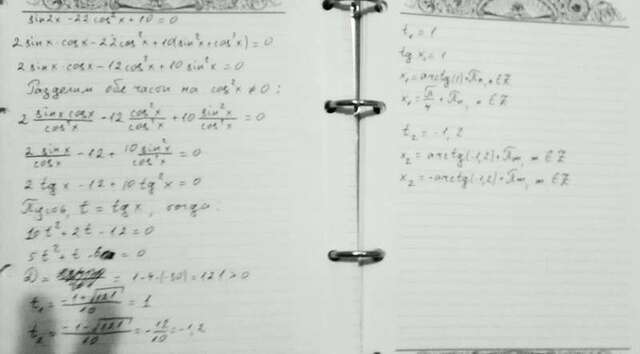 sin2x - 22cos²x + 10 = 0
2 sinx·cosx - 22cos²x + 10(sin²x + cos²x) = 0
2 sinx·cosx - 12cos²x + 10 sin²x = 0
Разделим обе части на cos²x ≠ 0:
2 sinx cosx/cos²x - 12 cos²x/cos²x + 10 sin²x/cos²x = 0
2 sinx/cosx - 12 + 10 sin²x/cos²x = 0
2 tgx - 12 + 10 tg²x = 0
Пусть, t = tgx, тогда:
10t² + 2t - 12 = 0
5t² + t = 0
D = = 1 - 4·(-30) = 121 > 0
t₁ = (-1 + √121)/10 = 1
t₂ = (-1 - √121)/10 = -12/10 = -1,2
t₁ = 1
tg x₁ = 1
x₁ = arctg(1) + πn, n ∈ Z
x₁ = π/4 + πn, n ∈ Z
t₂ = -1,2
x₂ = arctg(-1,2) + πm, m ∈ Z
x₂ = -arctg(-1,2) + πm, m ∈ Z